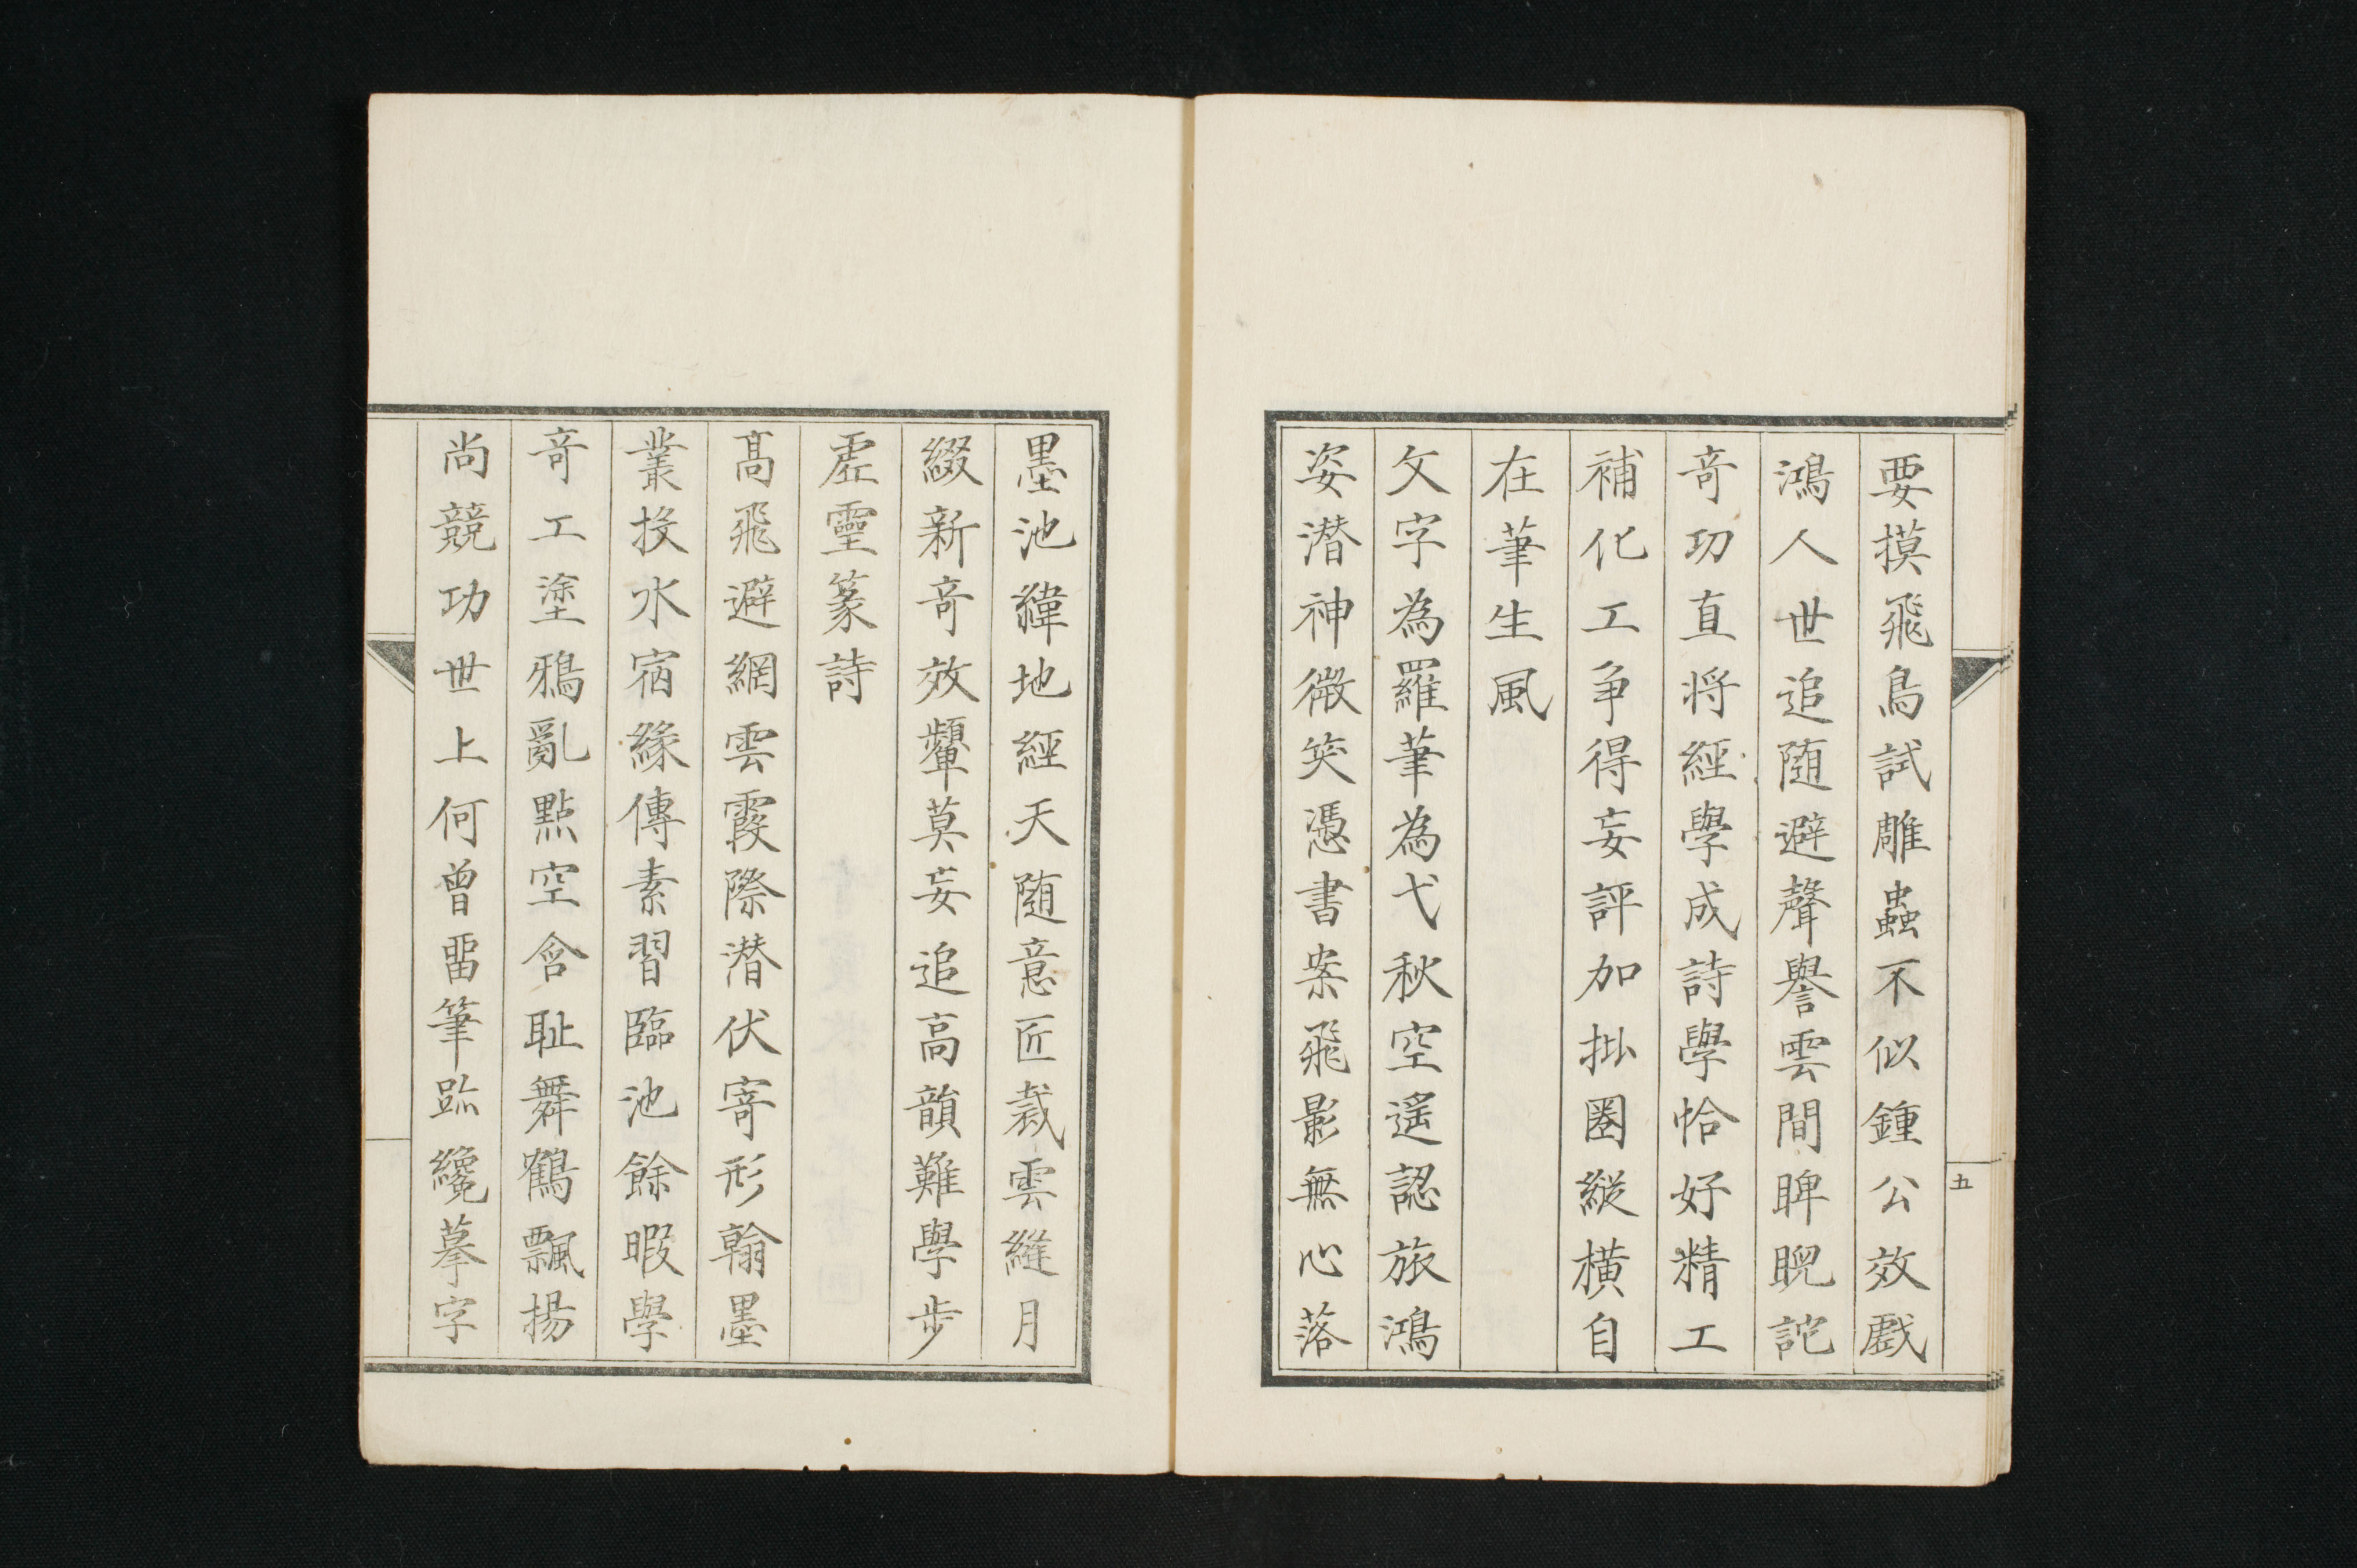 要摸飛鳥試雕蟲不似鍾公效戲
鴻人世追隨避聲譽雲間睥睨詫
奇功直将經學成詩學恰好精工
補化工争得妄評加批圈縱横自
在筆生風
文字為羅筆為弋秋空遥認旅鴻
姿潛神微笑憑書案飛影無心落
五
墨池緯地經天随意匠裁雲縫月
綴新奇效顰莫妄追高韻難學步
虛靈篆詩
髙飛避網雲霞際潛伏寄形翰墨
叢投水宿緣傳素習臨池餘暇學
奇工塗鴉亂點空含耻舞鶴飄揚
尚競功世上何曾畱筆跡纔摹字